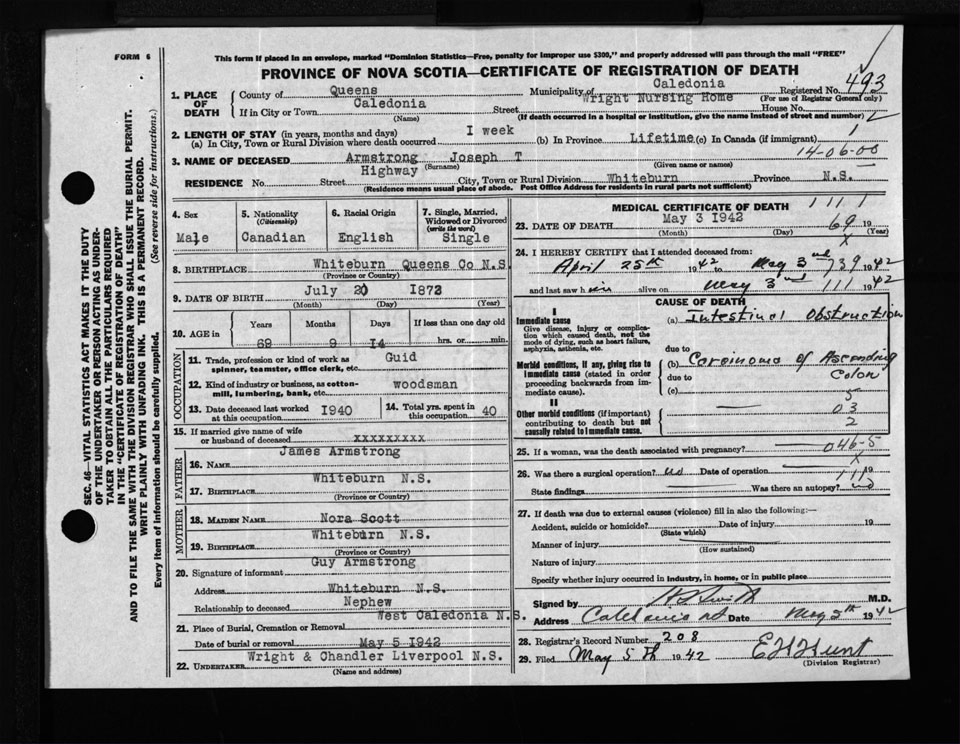 FORM 6
This form if placed in an envelope, marked "Dominion Statistics—Free, penalty for improper use $300," and properly addressed will pass through the mail "FREE"
PROVINCE OF NOVA SCOTIA—CERTIFICATE OF REGISTRATION OF DEATH
493
1. PLACE OF DEATH
County of Queens Municipality of Caledonia Registered No.
(For use of Registrar General only)
If in City or Town Caledonia Street Wright Nursing Home House No.
(Name) (If death occurred in a hospital or institution, give the name instead of street and number)
2. LENGTH OF STAY (in years, months and days)
(a) In City, Town or Rural Division where death occurred I week (b) In Province Lifetime (c) In Canada (if immigrant) 1
14-06-00
3. NAME OF DECEASED Armstrong Joseph T
(Surname) (Given name or names)
RESIDENCE No. Street Highway City, Town or Rural Division Whiteburn Province N.S.
(Residence means usual place of abode. Post Office Address for residents in rural parts not sufficient)
4. Sex Male
5. Nationality (Citizenship) Canadian
6. Racial Origin English
7. Single, Married, Widowed or Divorced (write the word) Single
8. BIRTHPLACE Whiteburn Queens Co N.S.
(Province or Country)
9. DATE OF BIRTH July 20 I873
(Month) (Day) (Year)
10. AGE in Years Months Days If less than one day old
69 9 I4 hrs. or min.
OCCUPATION
11. Trade, profession or kind of work as spinner, teamster, office clerk, etc. Guid
12. Kind of industry or business, as cotton-mill, lumbering, bank, etc. woodsman
13. Date deceased last worked at this occupation I940
14. Total yrs. spent in this occupation 40
15. If married give name of wife or husband of deceased xxxxxxxxx
FATHER
16. NAME James Armstrong
17. BIRTHPLACE Whiteburn N.S.
(Province or Country)
MOTHER
18. MAIDEN NAME Nora Scott
19. BIRTHPLACE Whiteburn N.S.
(Province or Country)
20. Signature of informant Guy Armstrong
Address Whiteburn N.S.
Relationship to deceased Nephew
21. Place of Burial, Cremation or Removal West Caledonia N.S.
Date of burial or removal May 5 I942
22. UNDERTAKER Wright & Chandler Liverpool N.S.
(Name and address)
MEDICAL CERTIFICATE OF DEATH
1 1 1 1
23. DATE OF DEATH May 3 I942 69 19
(Month) (Day) (Year)
X
24. I HEREBY CERTIFY that I attended deceased from:
April 25th 1942 to May 3rd 739 1942
and last saw him alive on May 3rd 111 1942
CAUSE OF DEATH
I
Immediate cause
Give disease, injury or complication which caused death, not the mode of dying, such as heart failure, asphyxia, asthenia, etc.
(a) Intestinal Obstruction
due to
Morbid conditions, if any, giving rise to immediate cause (stated in order proceeding backwards from immediate cause).
(b) Carcinoma of Ascending Colon
due to
(c)
5
II
Other morbid conditions (if important) contributing to death but not causally related to immediate cause.
03
2
25. If a woman, was the death associated with pregnancy? 046-5
X
26. Was there a surgical operation? no Date of operation 111 19
State findings Was there an autopsy? no
27. If death was due to external causes (violence) fill in also the following:—
Accident, suicide or homicide? Date of injury 19
(State which)
Manner of injury
(How sustained)
Nature of injury
Specify whether injury occurred in industry, in home, or in public place
Signed by M.D.
Address Caledonia NS Date May 5th 1942
28. Registrar's Record Number 208
29. Filed May 5th 1942 E H Hunt
(Division Registrar)
SEC. 46—VITAL STATISTICS ACT MAKES IT THE DUTY
OF THE UNDERTAKER OR PERSON ACTING AS UNDER-
TAKER TO OBTAIN ALL THE PARTICULARS REQUIRED
IN THE "CERTIFICATE OF REGISTRATION OF DEATH"
AND TO FILE THE SAME WITH THE DIVISION REGISTRAR WHO SHALL ISSUE THE BURIAL PERMIT.
WRITE PLAINLY WITH UNFADING INK. THIS IS A PERMANENT RECORD.
Every item of information should be carefully supplied. (See reverse side for instructions.)